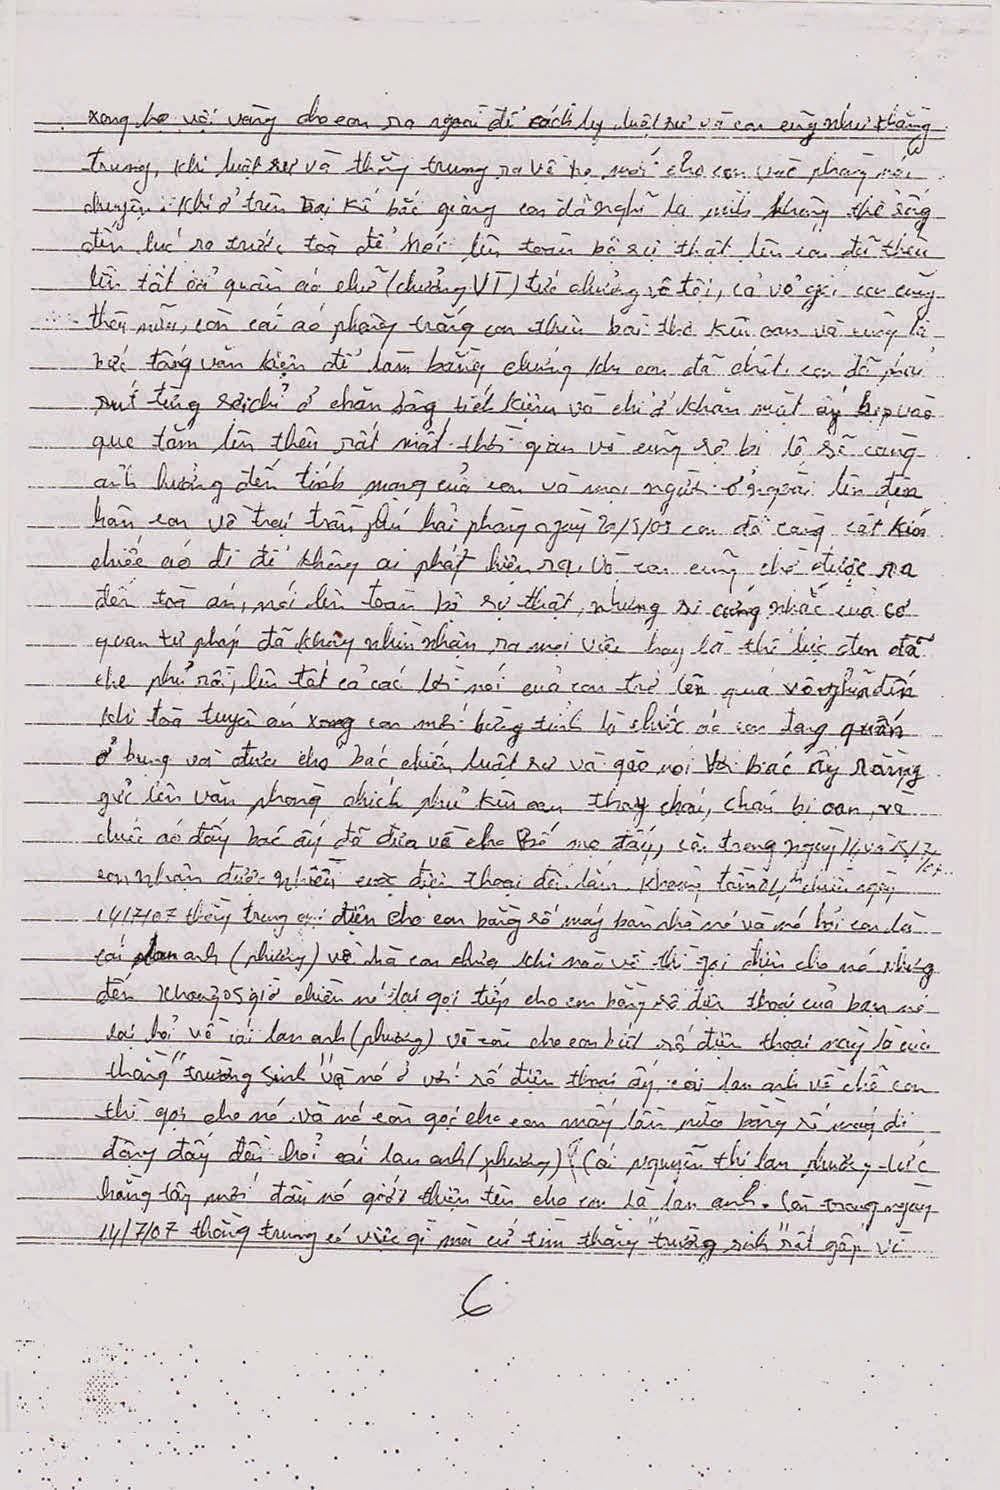 xong họ vội vàng cho con ra ngoài để cách ly luật sư và con cũng như thằng
trung, khi luật sư và thằng trung ra về họ mới cho con vào phòng nói
chuyện. khi ở trên trại kế bắc giang con đã nghĩ là mình không thể sống
đến lúc ra trước toà để nói lên toàn bộ sự thật lên con đã thêu
lên tất cả quần áo chữ (chưởng VT) tức chưởng vô tội, cả vỏ gối con cũng
thêu nữa, còn cái áo phông trắng con thêu bài thơ kêu oan và cũng là
bức tông văn kiện để làm bằng chứng khi con đã chết. con đã phải
rút từng sợi chỉ ở chăn bông tiết kiệm và chỉ ở khăn mặt ấy hẹp vào
que tăm lên thêu rất mất thời gian và cũng sợ bị lộ sẽ càng
ảnh hưởng đến tính mạng của con và mọi người ở ngoài lên đến
hôm con về trại trần phú hải phòng ngày 20/5/09 con đã càng cất kín
chiếc áo đi để không ai phát hiện ra, và con cũng chờ được ra
đến toà án, nói lên toàn bộ sự thật, nhưng sự cứng nhắc của cơ
quan tư pháp đã không nhìn nhận ra mọi việc hay là thế lực đen đã
che phủ rồi, lên tất cả các lời nói của con trở lên quá vô nghĩa đến
khi toà tuyên án xong con mới bừng tỉnh là chiếc áo con đang quấn
ở bụng và đưa cho bác chiến luật sư và gào nói với bác ấy rằng
gửi lên văn phòng chích phủ kêu oan thay cháu, cháu bị oan, và
chiếc áo đấy bác ấy đã đưa về cho bố mẹ đấy, còn trong ngày 14 và 15/7/07
con nhận được nhiều cuộc điện thoại đến lắm. khoảng tầm chiều ngày
14/7/07 thằng trung gọi điện cho con bằng số máy bàn nhà nó và nó hỏi con là
cái lan anh (phương) về nhà con chưa khi nào về thì gọi điện cho nó nhưng
đến khoảng 05 giờ chiều nó lại gọi tiếp cho con bằng số điện thoại của bạn nó
lại hỏi về cái lan anh (phương) và còn cho con biết số điện thoại này là của
thằng "trường sinh" và nó ở với số điện thoại ấy cái lan anh về chỗ con
thì gọi cho nó và nó còn gọi cho con mấy lần nữa bằng số máy di
động đấy đến hỏi cái lan anh (phương) (cái nguyễn thị lan phương - lúc
hằng tây mới đến nó giới thiệu tên cho con là lan anh. Còn trong ngày
14/7/07 thằng trung có việc gì mà cứ tìm thằng "trường sinh" rất gấp và
6